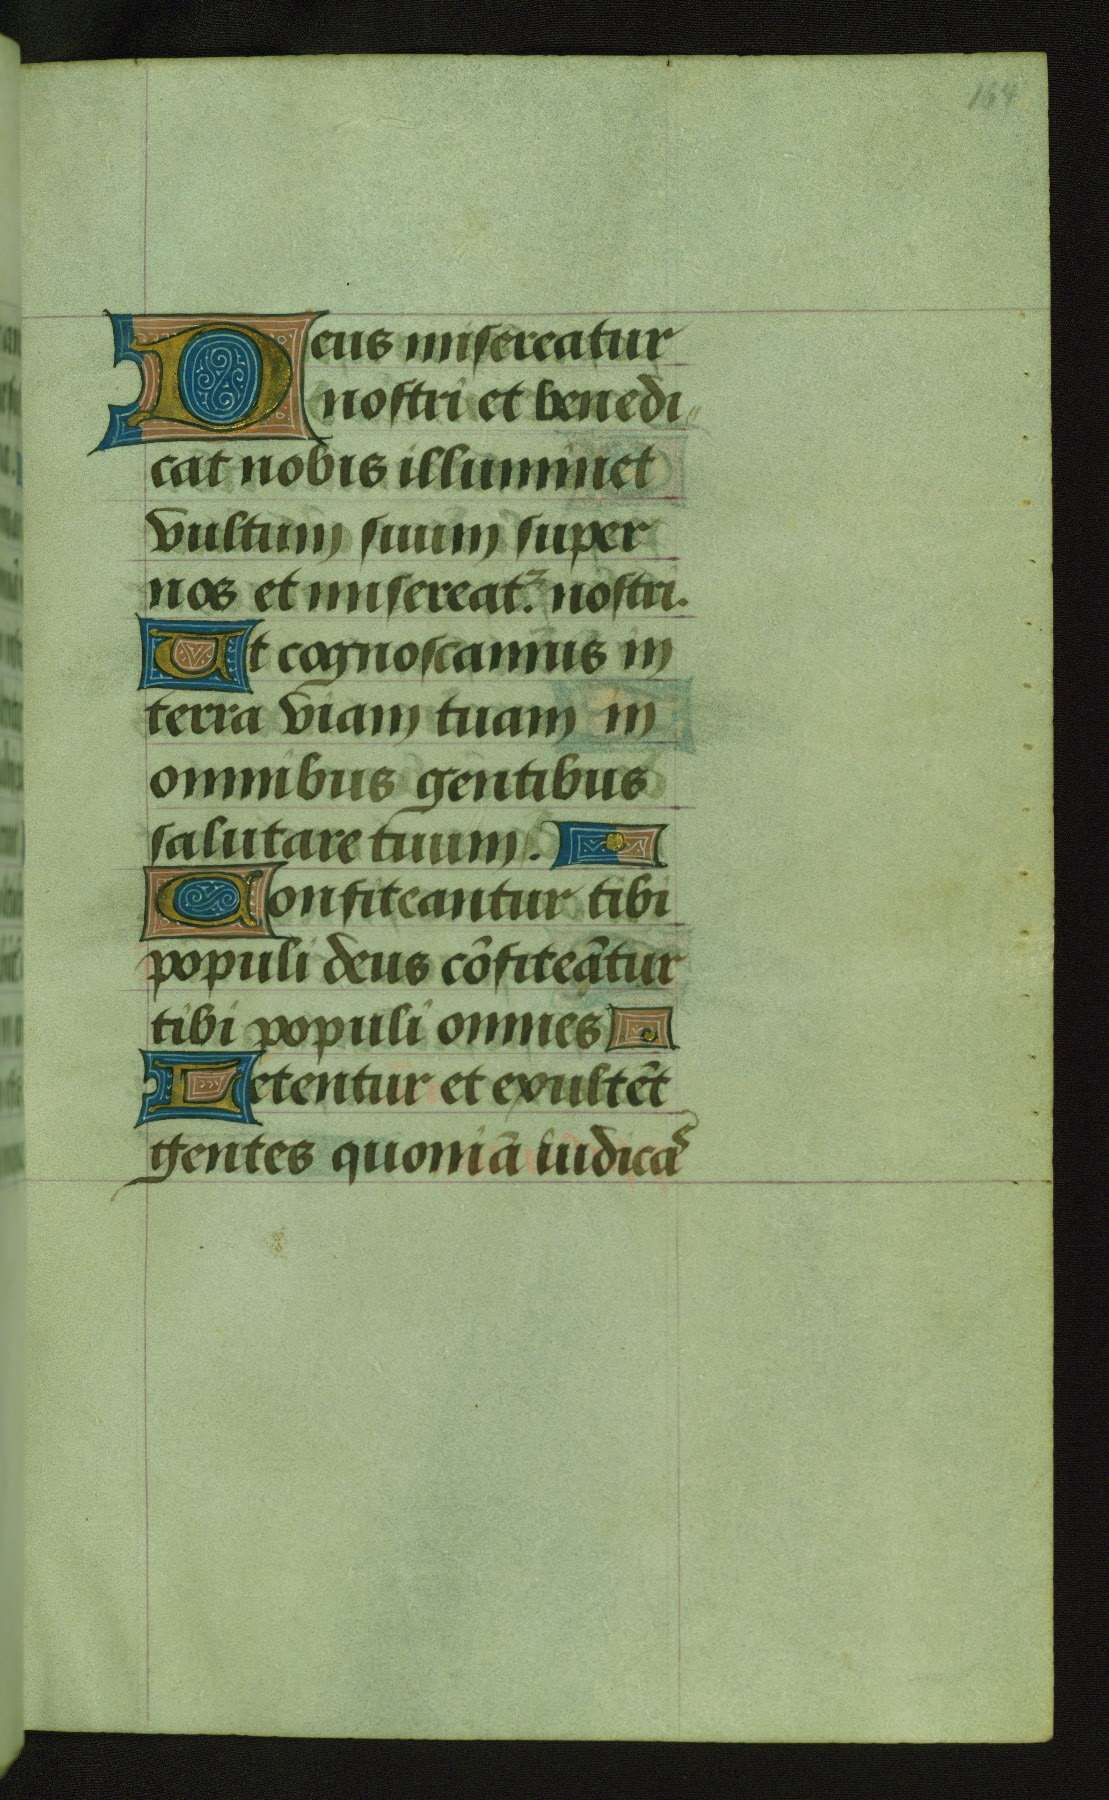 164
Deus misereatur
nostri et benedi„
cat nobis illuminet
vultum suum super
nos et misereat᷑. nostri.
Ut cognoscamus in
terra viam tuam in
omnibus gentibus
salutare tuum.
Confiteantur tibi
populi deus cōfiteātur
tibi populi omnes
Letentur et exultēt
gentes quoniā iudicaˢ